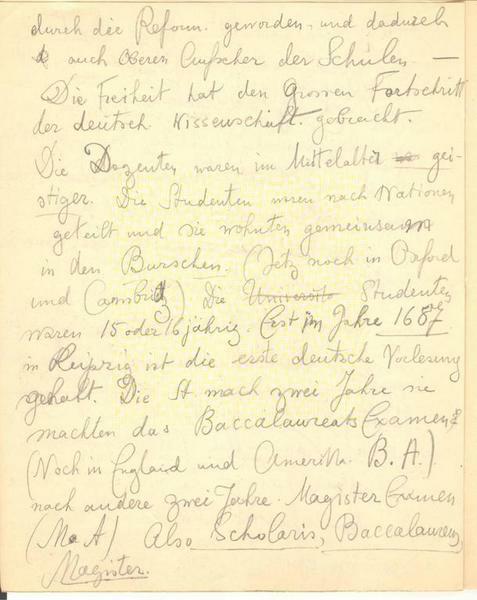 durch die Reform. geworden, und dadurch
auch Oberen Aufseher der Schulen —
Die Freiheit hat den Grossen Fortschritt
der deutsch. Wissenschaft. gebracht.
Die Dozenten waren im Mittelalter gei-
stiger. Die Studenten waren nach Nationen
geteilt und sie wohnten gemeinsam
in den Burschen. (Jetz noch in Oxford
und Cambritz) Die Universitä Studenten
waren 15 oder 16 jährig. Erst im Jahre 1687
in Leipzig ist die erste deutsche Vorlesung
gehalt. Die St nach zwei Jahre sie
machten das Baccalaureats Examen
(Noch in England und Amerika B.A.)
nach andere zwei Jahre. Magister Examen
(M.A) Also Scholaris, Baccalaureus,
Magister.